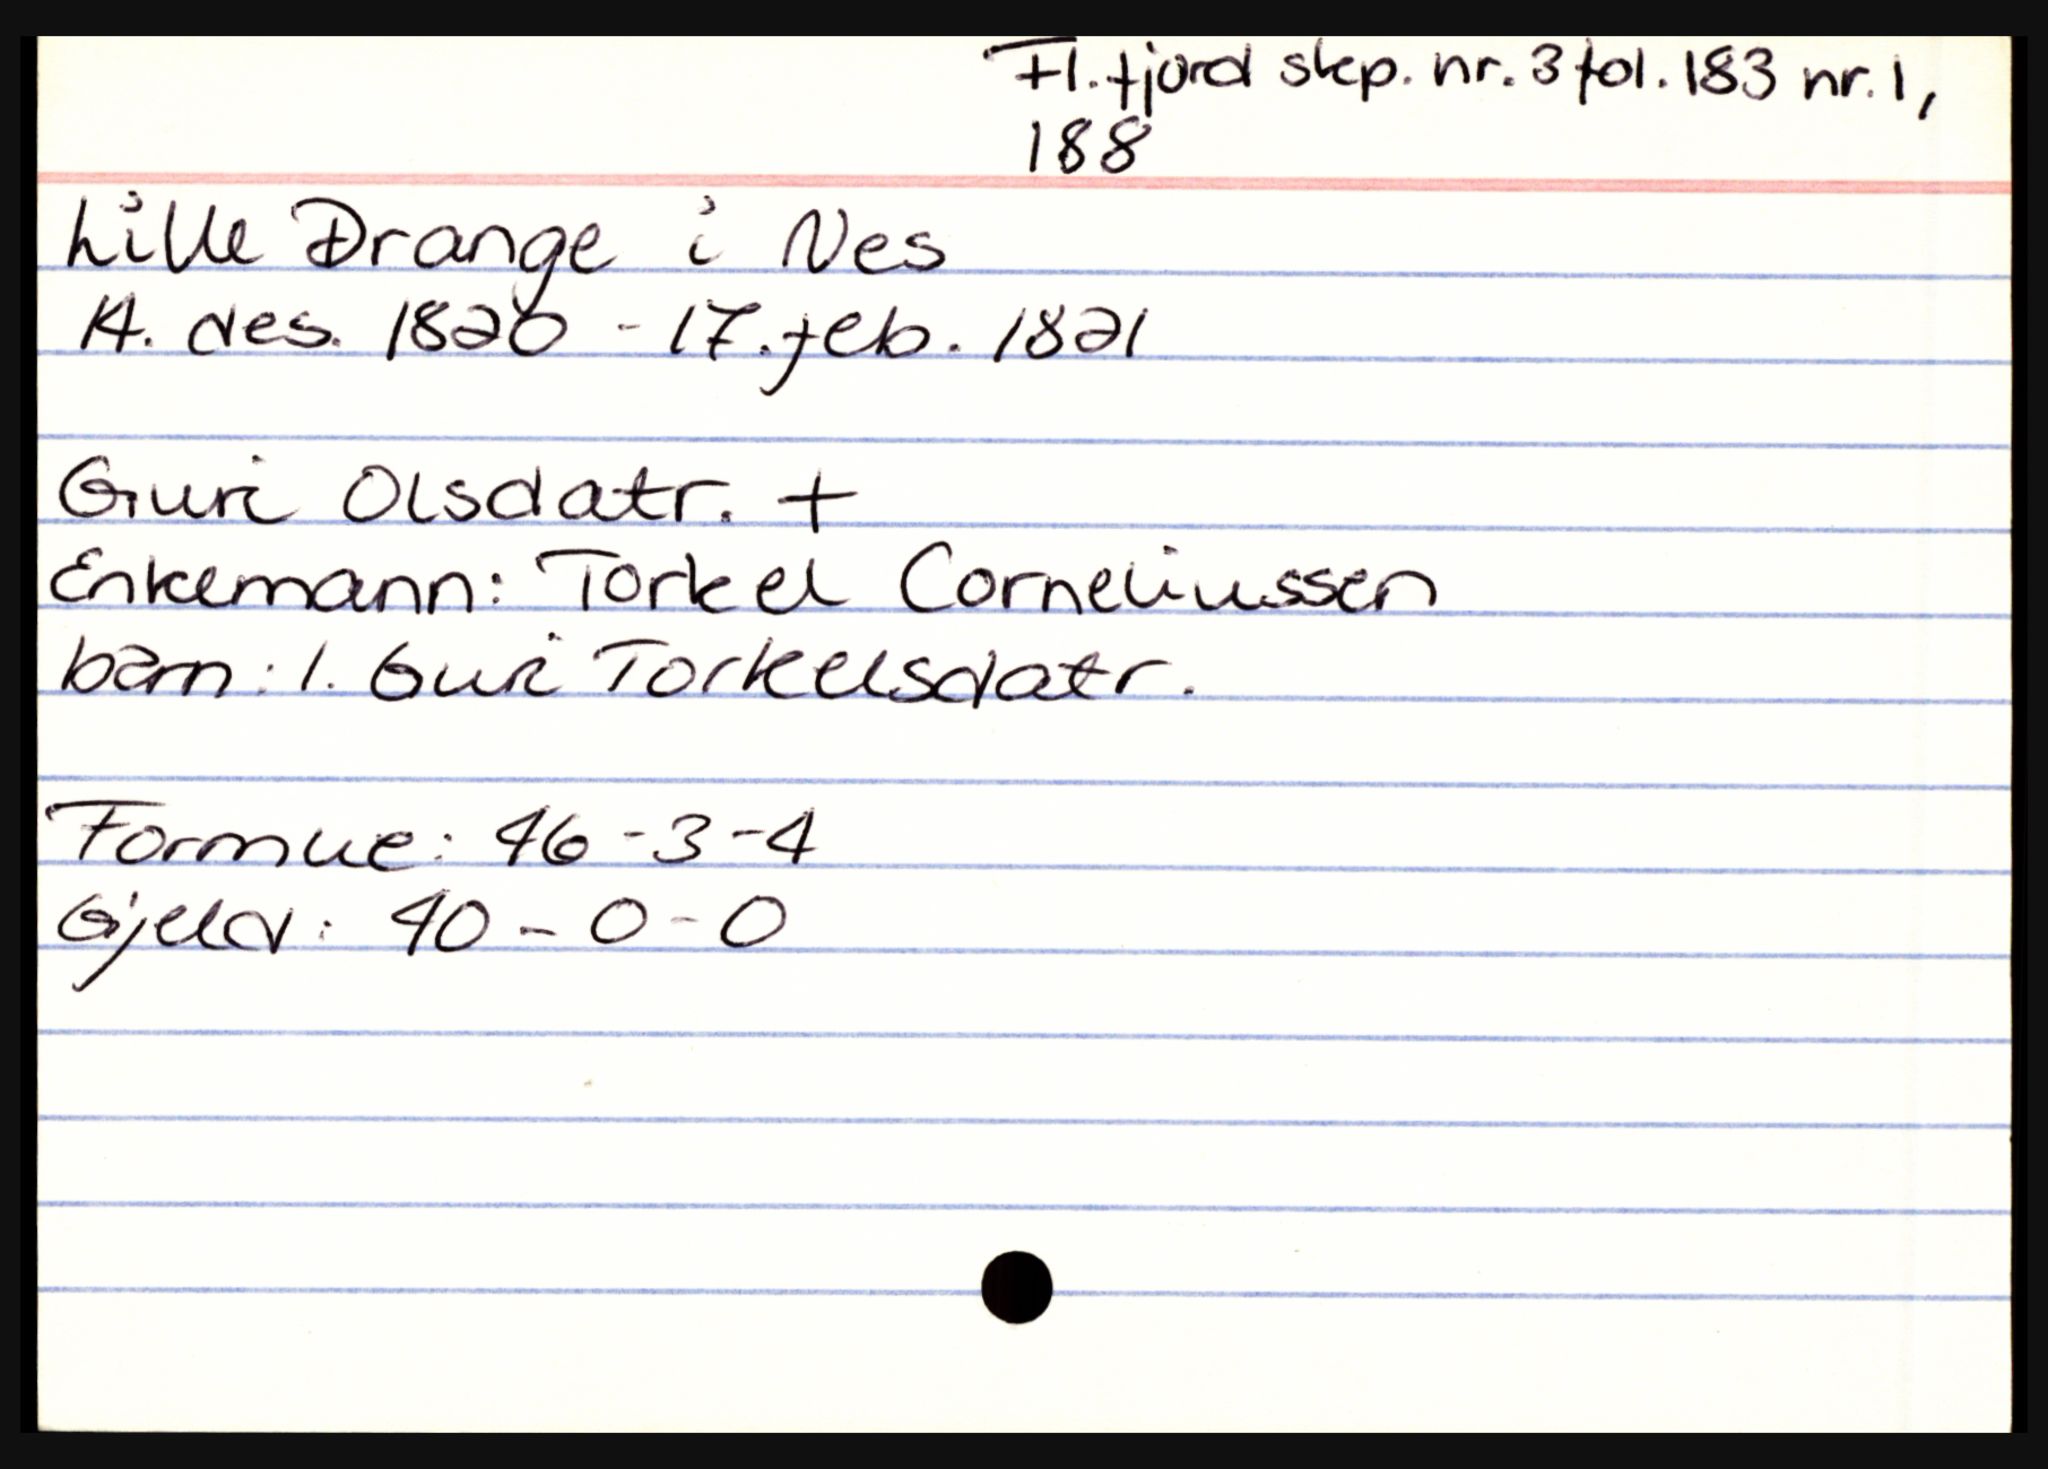 Fl.fjord skp. nr. 3 fol. 183 nr. 1,
188
Lille Drange i Nes
14. des. 1820 - 17. feb. 1821
Guri Olsdatr. +
Enkemann: Torkel Corneliussen
barn: 1. Guri Torkelsdatr.
Formue: 46 - 3 - 4
Gjeld: 40 - 0 - 0